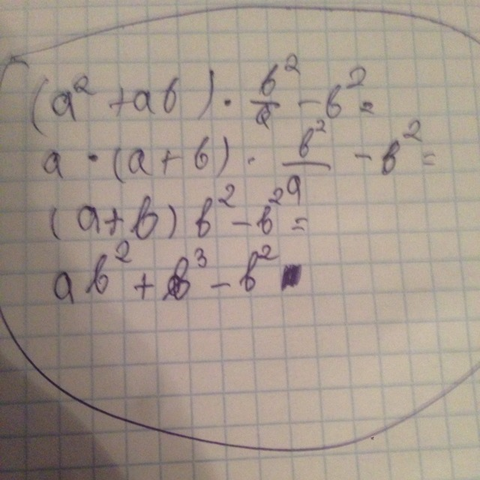 (a² + ab) · b²/a - b² =
a · (a + b) · b²/a - b² =
(a + b) b² - b² =
ab² + b³ - b²